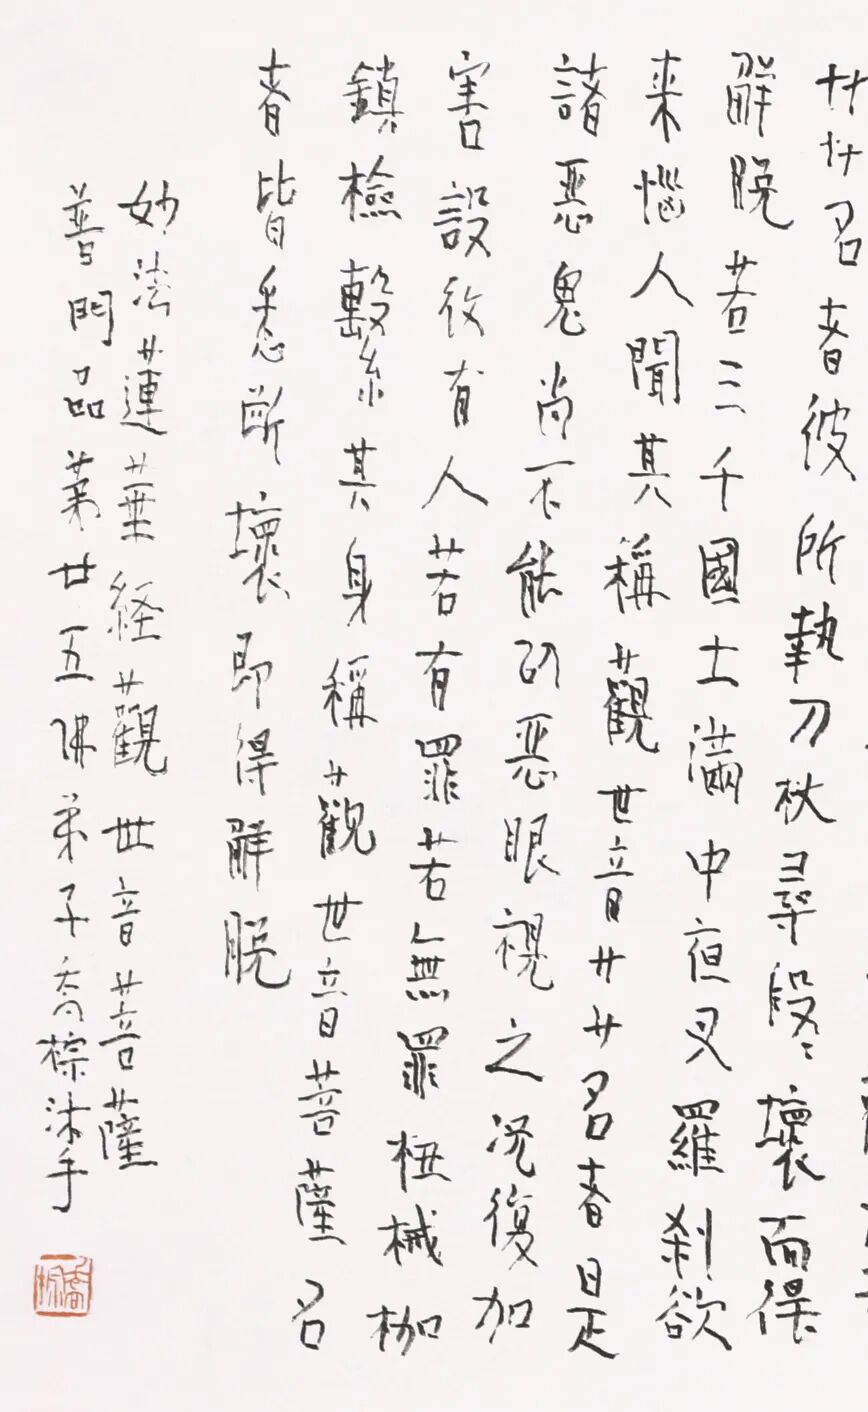 艹艹名者彼所執刀杖尋段〻壞而得
解脫若三千國土滿中夜叉羅刹欲
来惱人聞其稱觀世音艹艹名者是
諸恶鬼尚不能以恶眼視之况復加
害設復有人若有罪若無罪杻械枷
鎖檢繫其身稱觀世音菩薩名
者皆悉断壞即得解脫
妙法蓮華経觀世音菩薩
普門品第廿五佛弟子喬棕沐手